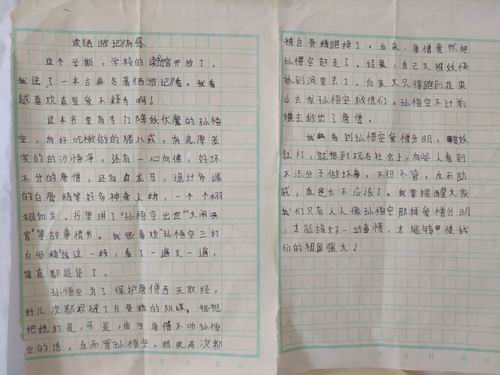 读《西游记》有感
这个学期，学校的读书馆开放了，
我选了一本古典名著《西游记》看。我看
越喜欢直至爱不释手啊！
这本书里有专门降妖伏魔的孙悟
空，有好吃懒做的猪八戒，有忠厚老
实的的沙悟净，还有一心向佛，好坏
不分的唐僧，还有白龙马，诡计多端
的白骨精等好多神奇人物，一个个栩
栩如生。书里讲了“孙悟空出世”“大闹天
宫”等故事情节。我最喜欢“孙悟空三打
白骨精”这一段，看了一遍又一遍，
简直都迷了。
孙悟空为了保护唐僧西天取经，
好几次都识破了白骨精的阴谋，很想
把她打死，可是，由于唐僧不听孙悟
空的话，反而骂孙悟空。结果两次都
被白骨精跑掉了。后来，唐僧竟然把
孙悟空赶走了。结果，自己又被妖怪
抓到洞里去了。后来又只得跑到花果
山去求孙悟空救他们，孙悟空不计前
嫌去救出了唐僧。
我看到孙悟空爱憎分明，
就打，就想到现在社会上，有些人看到
不法分子做坏事，不但不管，反而助
威，真是太不应该了。我要提醒大家
我们只有人人像孙悟空那样爱憎分明，
才能搞好一切事情，才能够使我
们的祖国强大！